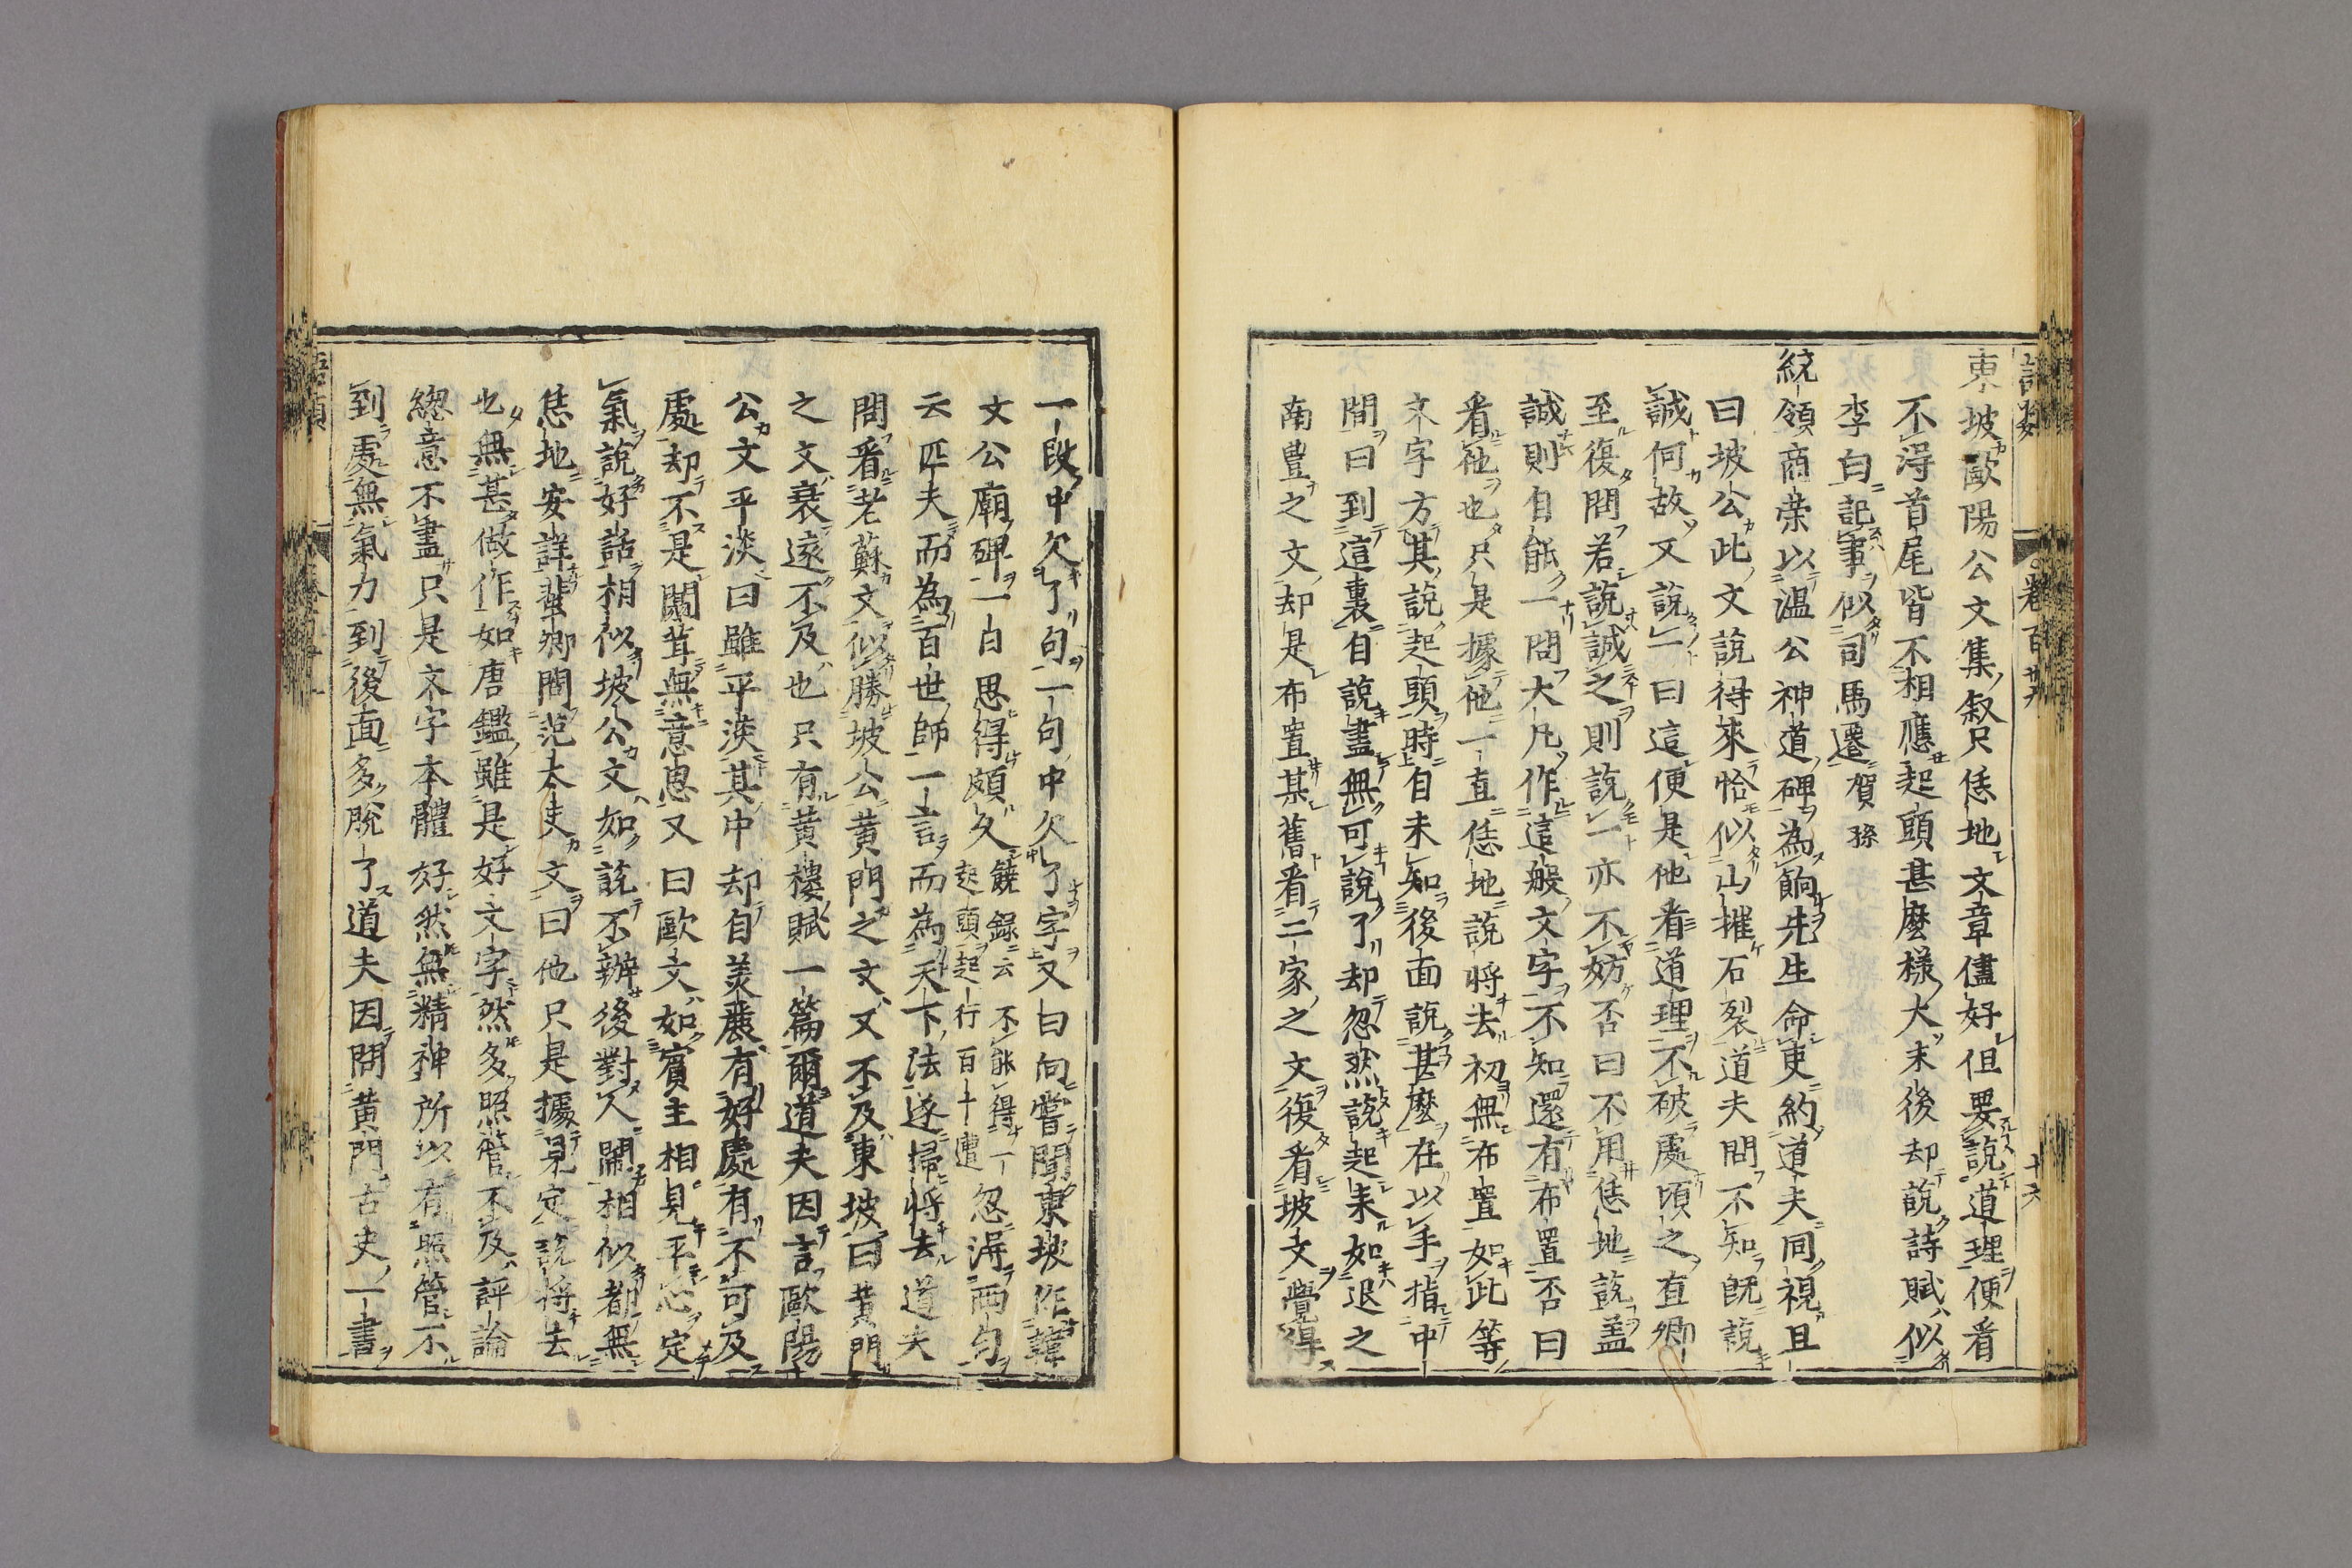 東坡歐陽公文集叙只恁地文章儘好但要說道理便看
不得首尾皆不相應起頭甚麼樣大末後却說詩賦似
李白記事似司馬遷賀孫
統領商榮以溫公神道碑為餉先生命吏約道夫同視且
曰坡公此文說得來恰似山摧石裂道夫問不知既說
誠何故又說一曰這便是他看道理不破處頃之直卿
至復問若說誠之則說一亦不妨否曰不用恁地說盖
誠則自能一問大凡作這般文字不知還有布置否曰
看他也只是據他一直恁地說將去初無布置如此等
文字方其說起頭時自未知後面說甚麼在以手指中
間曰到這裏自說盡無可說了却忽然說起来如退之
南豊之文却是布置某舊看二家之文復看坡文覺得
一段中欠了句一句中欠了字又曰向嘗聞東坡作韓
文公廟碑一日思得頗久饒錄云不能得一
起頭起行百十遭忽得兩句
云匹夫而為百世師一言而為天下法遂掃將去道夫
問看老蘇文似勝坡公黄門之文又不及東坡曰黄門
之文衰遠不及也只有黄樓賦一篇爾道夫因言歐陽
公文平淡曰雖平淡其中却自美麗有好處有不可及
處却不是闒茸無意思又曰歐文如賓主相見平心定
氣說好話相似坡公文如說不辦後對人鬧相似都無
恁地安詳蜚卿問范太史文曰他只是據見定說將去
也無甚做作如唐鑑雖是好文字然多照管不及評論
緫意不盡只是文字本體好然無精神所以有照管不
到處無氣力到後面多脫了道夫因問黄門古史一書